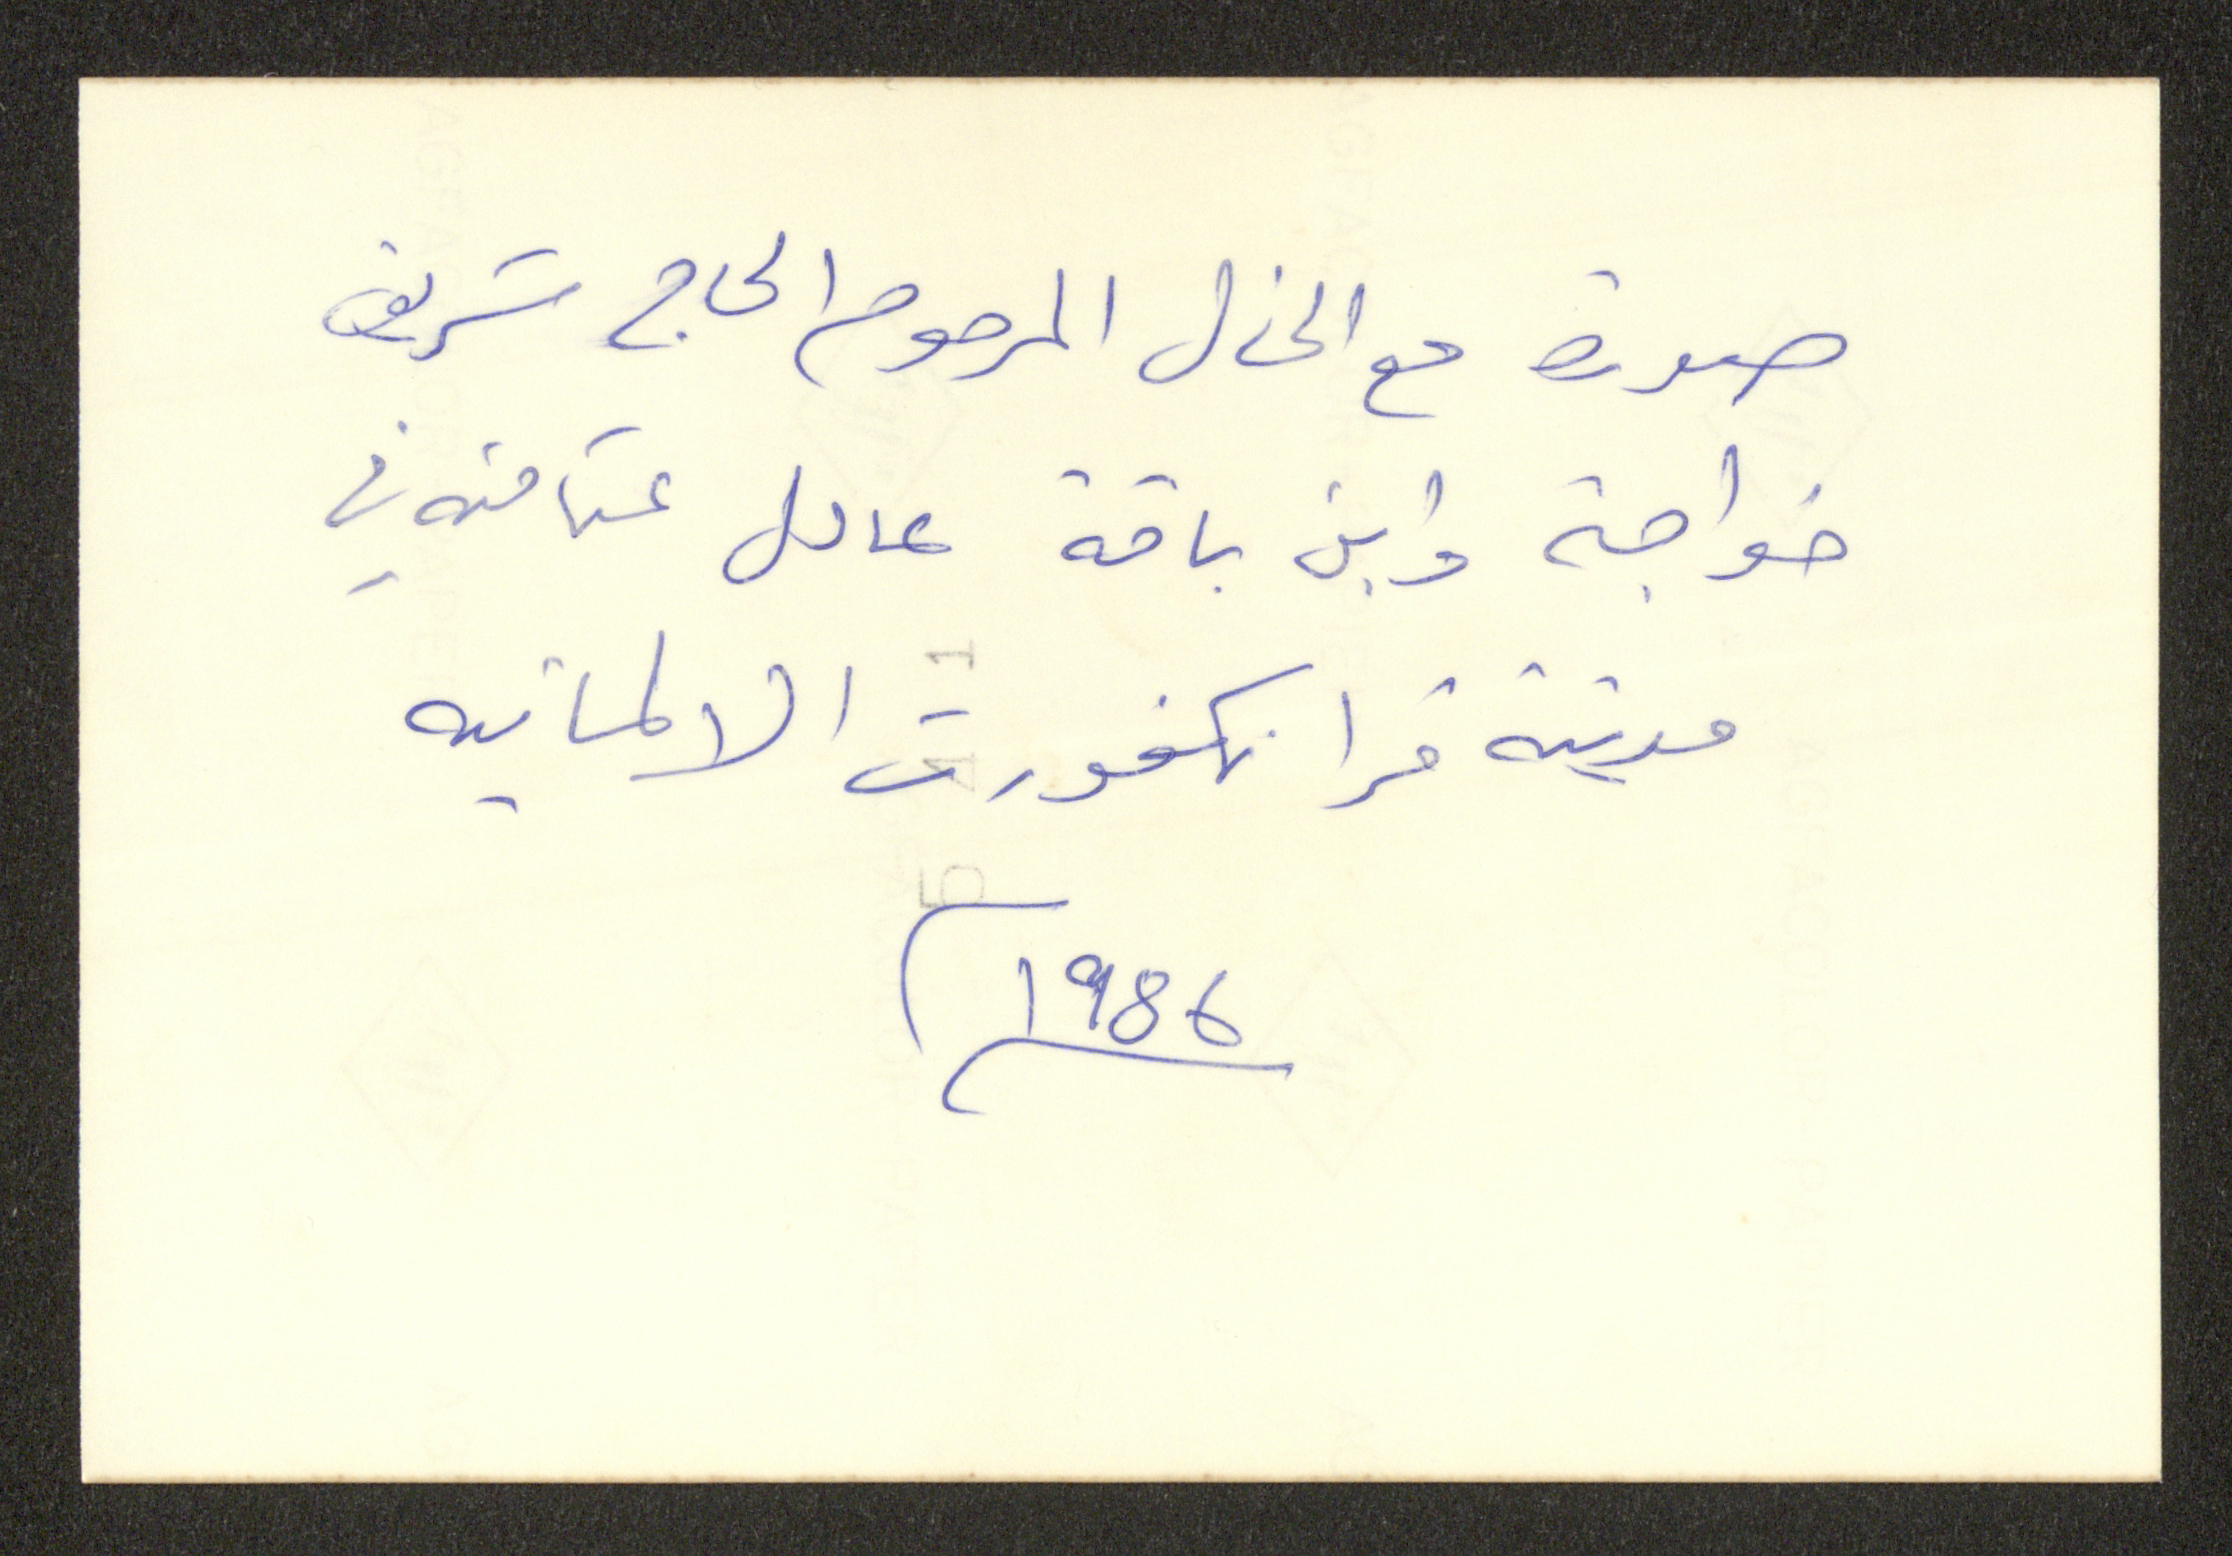 صورة مع الخال المرحوم الحاج شريف
خواجة وابن باقة عادل عتامنه في
مدينة فرانكفورت الالمانيه
1986